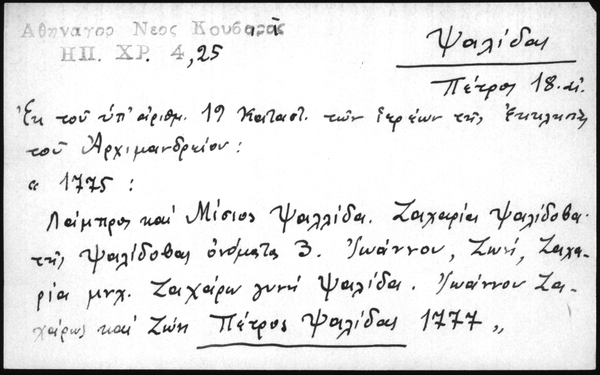 Αθηναγορ Νεος Κουβαρᾶ
ΗΠ. ΧΡ. 4,25
Ψαλίδας
Πέτρος 18. αἰ.
Ἐκ τοῦ ὑπ' ἀριθμ. 19 Καταστ. τῶν ἱερέων τῆς Ἐκκλησίας
τοῦ Ἀρχιμανδρείου:
« 1775 :
Λάμπρος καὶ Μίσιος Ψαλλίδα. Ζαχαρία Ψαλίδοβα.
τῆς Ψαλίδοβας ὀνόματα 3. Ἰωάννου, Ζωή, Ζαχα-
ρία μνχ. Ζαχάρω γυνή Ψαλίδα. Ἰωάννου Ζα-
χάρως καὶ Ζώη Πέτρος Ψαλίδας 1777 „